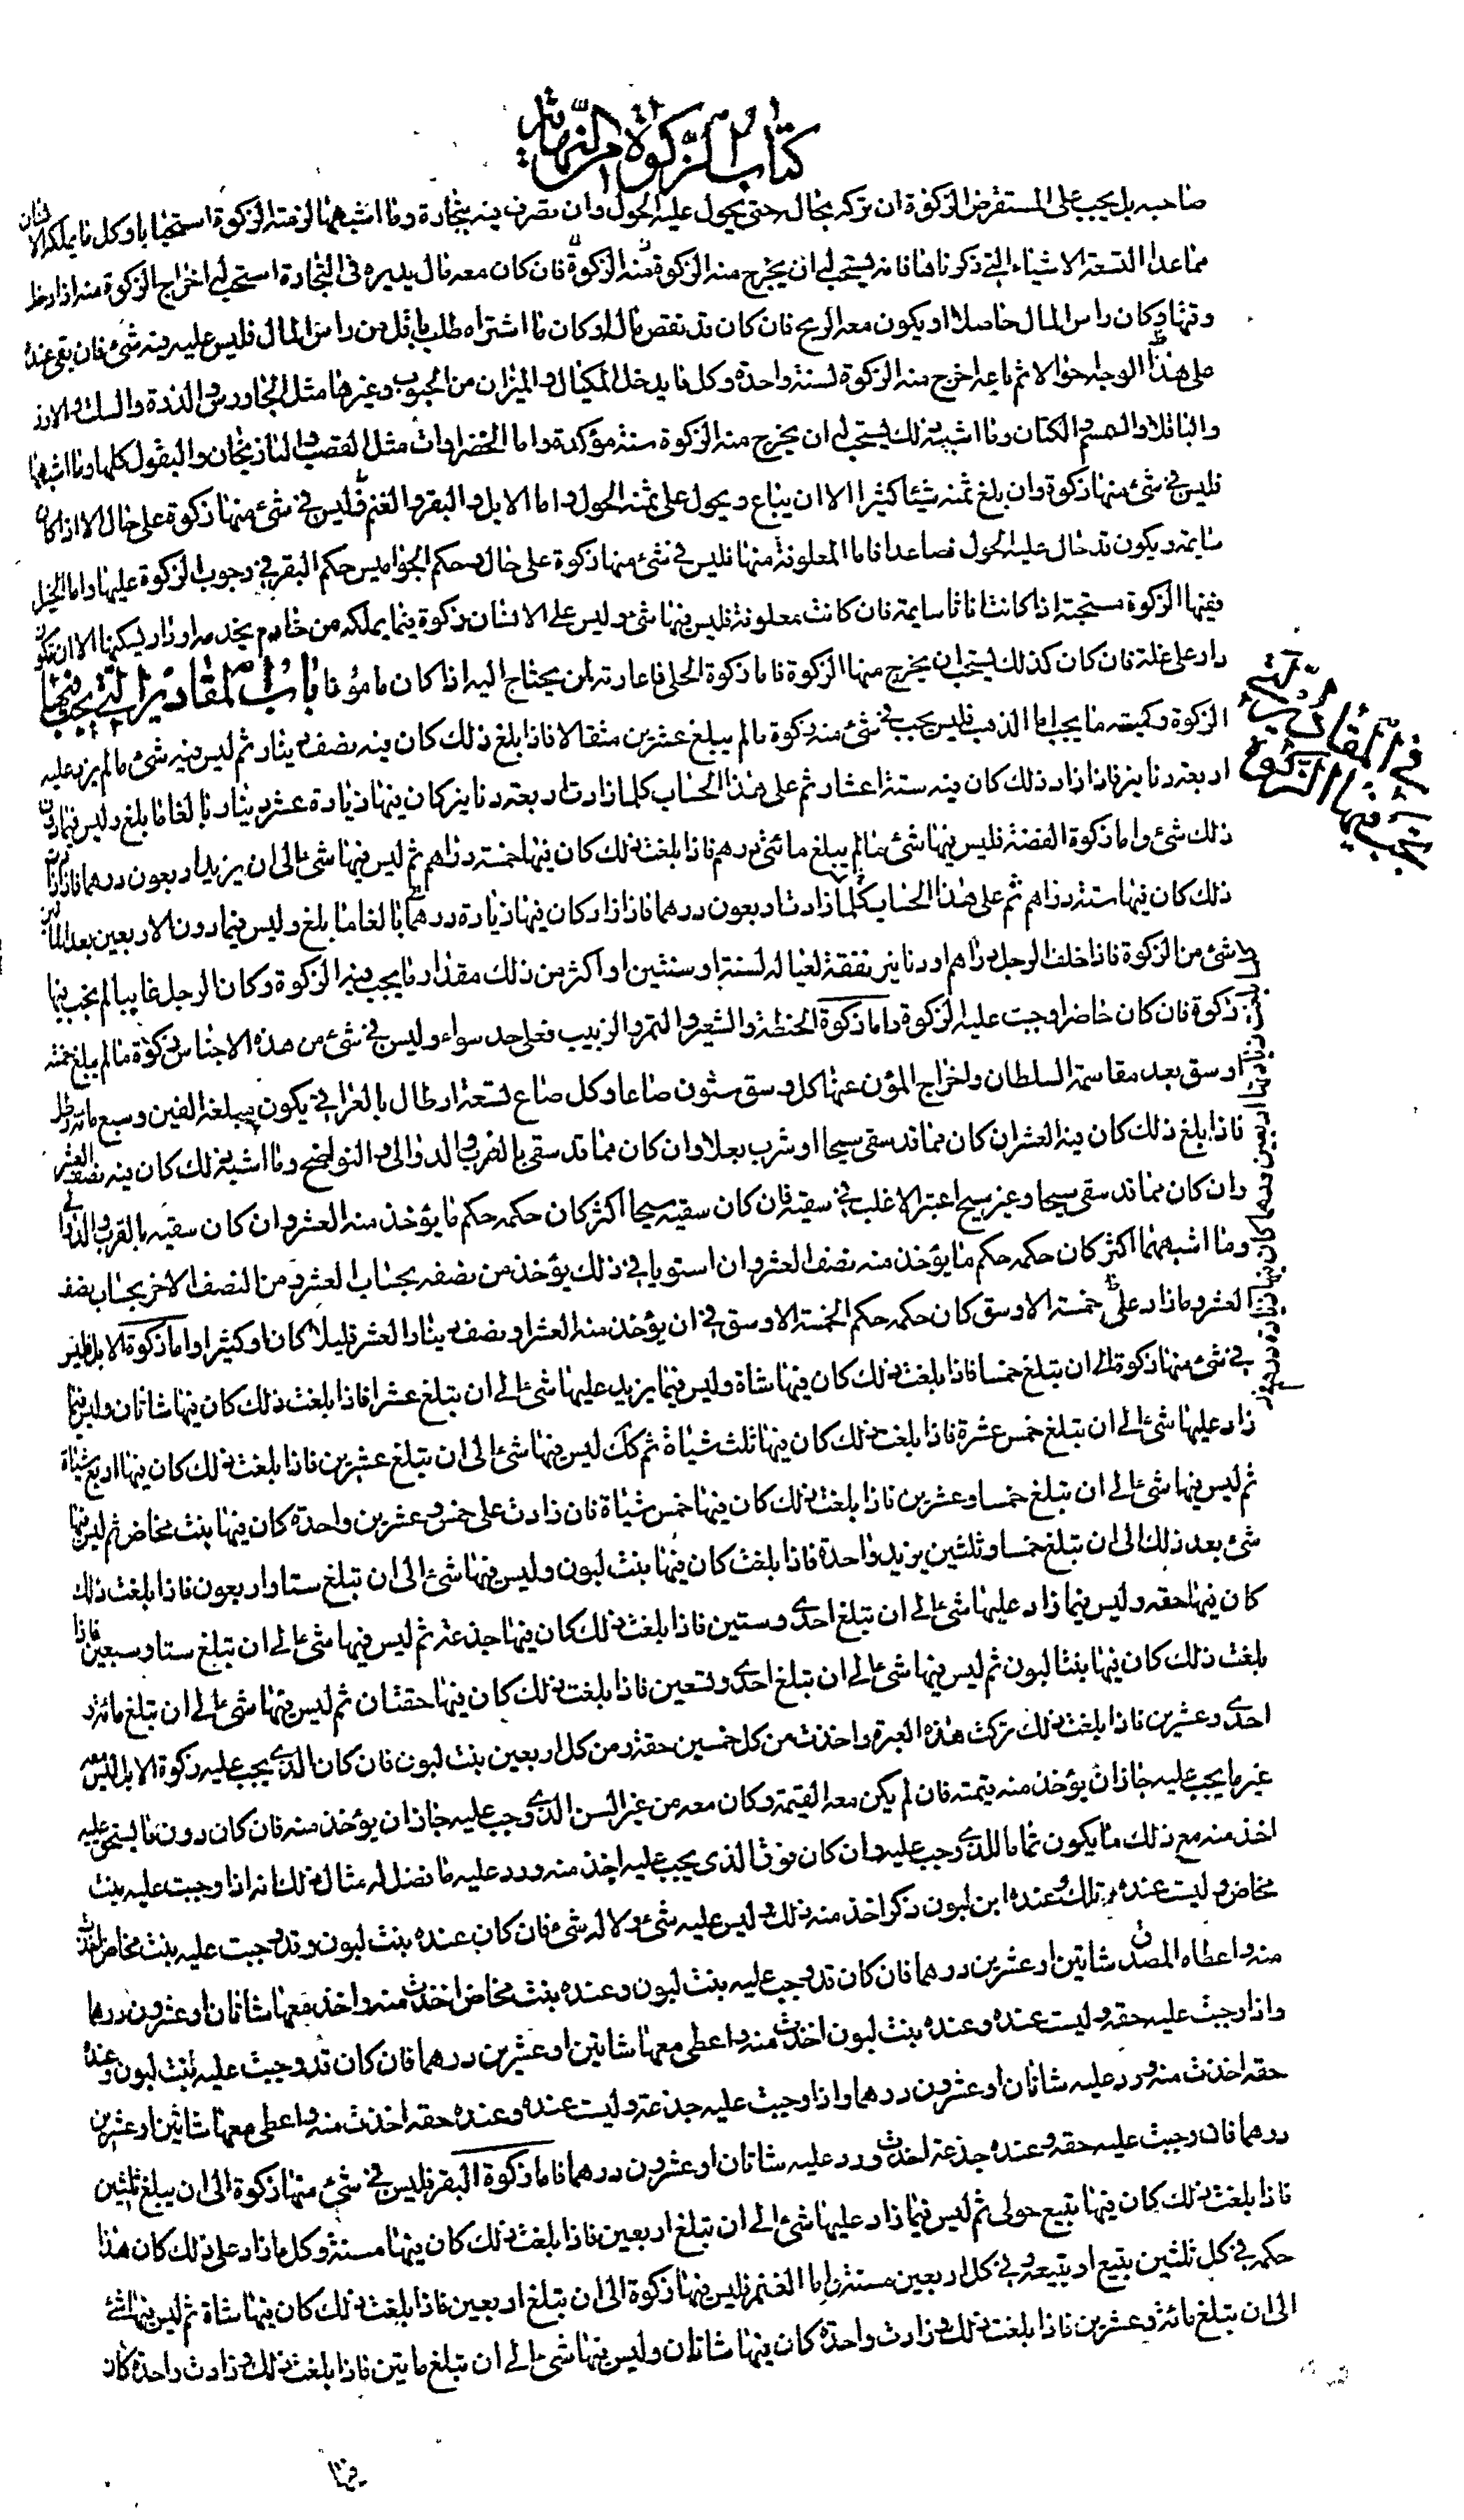 كتاب الزكوة من النهاية
صاحبه بل يجب على المستقرض الزكوة ان تركه بحاله حتى يحول عليه الحول وان تصرف فيه بتجارة وما اشبهها لزمته الزكوة استحبابا وكل ما يملكه الانسان
مما عدا التسعة الاشياء التي ذكرناها فانه يستحب له ان يخرج منه الزكوة فان كان معه مال يديره في التجارة استحب له اخراج الزكوة منه اذا دخل
وقتها وكان راس المال حاصلا او يكون معه الربح فان كان قد نقص ماله او كان ما اشتراه طلب باقل من راس المال فليس عليه فيه شئ فان بقى عنده
على هذا الوجه احوالا ثم باعه اخرج منه الزكوة لسنة واحدة وكل ما يدخل المكيال والميزان من الحبوب وغيرها مثل الجاورس والذرة والسلت والارز
والباقلا والسمسم والكتان وما اشبه ذلك يستحب له ان يخرج منه الزكوة سنة مؤكدة واما الخضراوات مثل القصب والباذنجان والبقول كلها وما اشبهها
فليس في شئ منها زكوة وان بلغ ثمنه شيئا كثيرا الا ان يباع ويحول على ثمنه الحول واما الابل والبقر والغنم فليس في شئ منها زكوة على حال الا اذا كان
سايمة ويكون قد حال عليه الحول فصاعدا فاما المعلوفة منها فليس في شئ منها زكوة على حال وحكم الجواميس حكم البقر في وجوب الزكوة عليها واما الخيل
ففيها الزكوة مستحبة اذا كانت اناثا سايمة فان كانت معلوفة فليس فيها شئ وليس على الانسان زكوة فيما يملكه من خادم يخدمه او دار يسكنها الا ان تكون
دار على غلة فان كان كذلك يستحب ان يخرج منها الزكوة فاما زكوة الحلى فاعارته لمن يحتاج اليه اذا كان مامونا باب المقادير التي يجب فيها
الزكوة وكميته ما يجب اما الذهب فليس يجب في شئ منه زكوة ما لم يبلغ عشرين مثقالا فاذا بلغ ذلك كان فيه نصف دينار ثم ليس فيه شئ ما لم يزد عليه
اربعة دنانير فاذا زاد ذلك كان فيه ستة اعشار ثم على هذا الحساب كلما زادت اربعة دنانير كان فيها زيادة عشر دينار بالغا ما بلغ وليس فيما دون
ذلك شئ واما زكوة الفضة فليس فيها شئ ما لم يبلغ مائتى درهم فاذا بلغت ذلك كان فيها خمسة دراهم ثم ليس فيها شئ الى ان يزيد اربعون درهما فاذا زاد
ذلك كان فيها ستة دراهم ثم على هذا الحساب كلما زادت اربعون درهما فاذا زاد كان فيها زيادة درهم بالغا ما بلغ وليس فيما دون الاربعين بعد المائتين
شئ من الزكوة فاذا خلف الرجل دراهم او دنانير نفقة لعياله لسنة او سنتين او اكثر من ذلك مقدار ما يجب فيه الزكوة وكان الرجل غايبا لم يجب فيها
زكوة فان كان حاضرا وجبت عليه الزكوة واما زكوة الحنطة والشعير والتمر والزبيب فعلى حد سواء وليس في شئ من هذه الاجناس زكوة ما لم يبلغ خمسة
اوسق بعد مقاسمة السلطان واخراج المؤن عنها كل وسق ستون صاعا وكل صاع تسعة ارطال بالعراقي يكون مبلغه الفين وسبع مائة رطل
فاذا بلغ ذلك كان فيه العشر ان كان مما قد سقى سيحا او شرب بعلا وان كان مما قد سقى بالغرب والدوالى والنواضح وما اشبه ذلك كان فيه نصف العشر
وان كان مما قد سقى سيحا وغير سيح اعتبر الاغلب في سقيه فان كان سقيه سيحا اكثر كان حكمه حكم ما يؤخذ منه العشر وان كان سقيه بالغرب والدوالي
وما اشبههما اكثر كان حكمه حكم ما يؤخذ منه نصف العشر وان استويا في ذلك يؤخذ من نصفه بحساب العشر ومن النصف الاخر بحساب نصف
العشر وما زاد على خمسة الاوسق كان حكمه حكم الخمسة الاوسق في ان يؤخذ منه العشر او نصف العشر قليلا كان او كثيرا واما زكوة الابل فليس
في شئ منها زكوة الى ان تبلغ خمسا فاذا بلغت ذلك كان فيها شاة وليس فيما يزيد عليها شئ الى ان تبلغ عشرا فاذا بلغت ذلك كان فيها شاتان وليس فيما
زاد عليها شئ الى ان تبلغ خمس عشرة فاذا بلغت ذلك كان فيها ثلث شياة ثم كك ليس فيها شئ الى ان تبلغ عشرين فاذا بلغت ذلك كان فيها اربع شياة
ثم ليس فيها شئ الى ان تبلغ خمسا وعشرين فاذا بلغت ذلك كان فيها خمس شياة فان زادت على خمس وعشرين واحدة كان فيها بنت مخاض ثم ليس فيها
شئ بعد ذلك الى ان تبلغ خمسا وثلثين يزيد واحدة فاذا بلغت كان فيها بنت لبون وليس فيها شئ الى ان تبلغ ستا واربعون فاذا بلغت ذلك
كان فيها حقه وليس فيما زاد عليها شئ الى ان تبلغ احدى وستين فاذا بلغت ذلك كان فيها جذعة ثم ليس فيها شئ الى ان تبلغ ستا وسبعين فاذا
بلغت ذلك كان فيها بنتا لبون ثم ليس فيها شئ الى ان تبلغ احدى وتسعين فاذا بلغت ذلك كان فيها حقتان ثم ليس فيها شئ الى ان تبلغ مائة و
احدى وعشرين فاذا بلغت ذلك تركت هذه العبرة واخذت من كل خمسين حقة ومن كل اربعين بنت لبون فان كان الذي يجب عليه زكوة الابل ليس معه
غير ما يجب عليه جاز ان يؤخذ منه قيمته فان لم يكن معه القيمة وكان معه من غير السن الذي وجب عليه جاز ان يؤخذ منه فان كان دون ما يستحق عليه
اخذ منه مع ذلك ما يكون تماما للذي وجب عليه وان كان فوق الذى يجب عليه اخذ منه ورد عليه ما فضل له مثال ذلك انه اذا وجبت عليه بنت
مخاض وليست عنده تلك وعنده ابن لبون ذكر اخذ منه ذلك وليس عليه شئ ولا له شئ فان كان عنده بنت لبون وقد وجبت عليه بنت مخاض اخذت
منه واعطاه المصدق شاتين او عشرين درهما فان كان قد وجب عليه بنت لبون وعنده بنت مخاض اخذت منه واخذ معها شاتان او عشرون درهما
واذا وجبت عليه حقه وليست عنده وعنده بنت لبون اخذت منه واعطى معها شاتين او عشرين درهما فان كان قد وجبت عليه بنت لبون وعنده
حقه اخذت منه ورد عليه شاتان او عشرون درهما واذا وجبت عليه جذعة وليست عنده وعنده حقه اخذت منه واعطى معها شاتين او عشرين
درهما فان وجبت عليه حقه وعنده جذعة اخذت ورد عليه شاتان او عشرون درهما فاما زكوة البقر فليس في شئ منها زكوة الى ان يبلغ ثلثين
فاذا بلغت ذلك كان فيها تبيع حولى ثم ليس فيما زاد عليها شئ الى ان تبلغ اربعين فاذا بلغت ذلك كان فيها مسنة وكل ما زاد على ذلك كان هذا
حكمه في كل ثلثين تبيع او تبيعة وفي كل اربعين مسنة واما الغنم فليس فيها زكوة الى ان تبلغ اربعين فاذا بلغت ذلك كان فيها شاة ثم ليس فيها شئ
الى ان تبلغ مائة وعشرين فاذا بلغت ذلك وزادت واحدة كان فيها شاتان وليس فيها شئ الى ان تبلغ مايتين فاذا بلغت ذلك وزادت واحدة كان
في المقادير التي
تجب فيها الزكوة